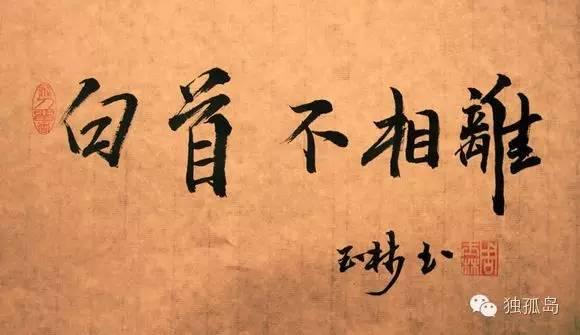 白首不相離
玉林书
独孤岛